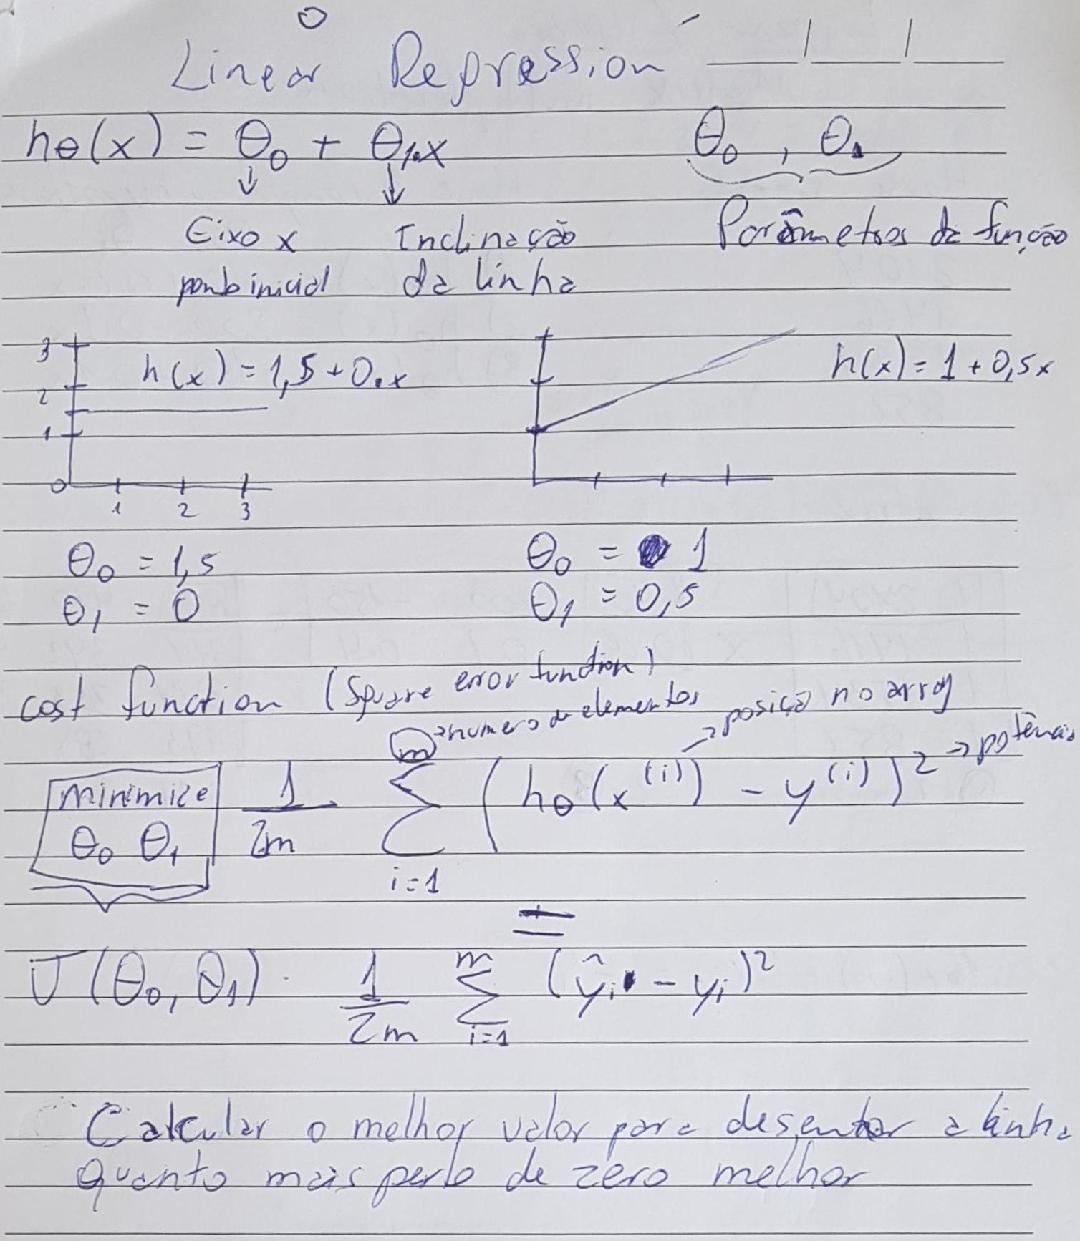 Linear Regression
__/__/__
hθ(x) = θ₀ + θ₁.x
θ₀ , θ₁
↓ ↓
Eixo x Inclinação
ponto inicial da linha
Parâmetros da função
3
2
1
0
1 2 3
h(x) = 1,5 + 0.x
h(x) = 1 + 0,5x
θ₀ = 1,5
θ₁ = 0
θ₀ = 1
θ₁ = 0,5
cost function (Square error function)
→ numero de elementos
→ posição no array
→ potência
minimize
θ₀ θ₁
1/2m m Σ i=1 (hθ(x⁽ⁱ⁾) - y⁽ⁱ⁾)²
=
J(θ₀, θ₁) . 1/2m m Σ i=1 (ŷᵢ - yᵢ)²
Calcular o melhor valor para desenhar a linha
quanto mais perto de zero melhor